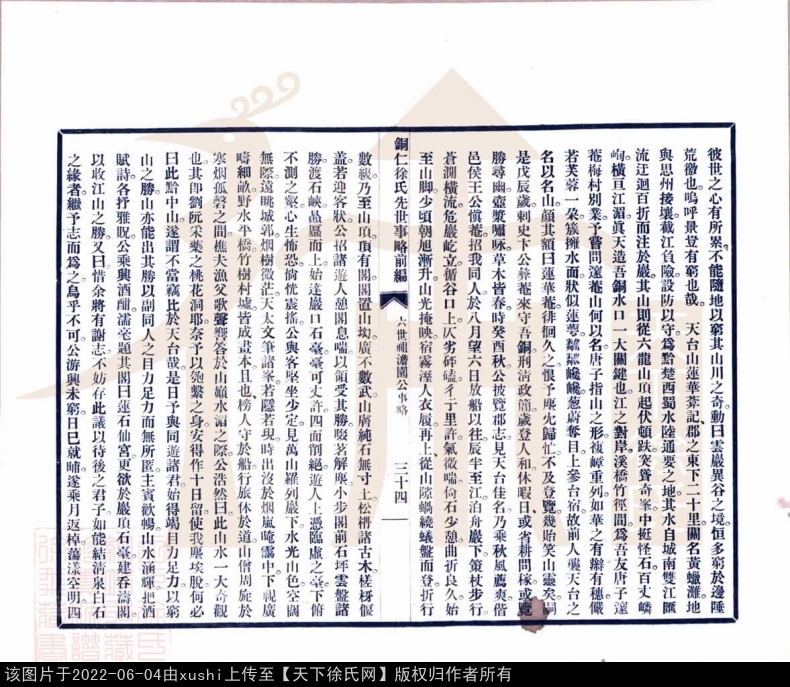 彼世之心有所累不能隨地以窮其山川之奇動曰雲巖異谷之境恒多窮於邊陲
荒徼也嗚呼景豈有窮也哉。 天台山蓮華菴記郡之東下二十里關名黃蠟灘地
與思州接壤截江負險設防以守為黔楚西蜀水陸通要之地其水自城南雙江匯
流迂迴百折而注於巖其山則從六龍山頂起伏頓跌突聳奇峯中挺怪石百丈嶙
峋橫亘江湄眞天造吾銅水口一大關鍵也江之對岸溪橋竹徑間爲吾友唐子薳
菴梅村別業予嘗問薳菴山何以名唐子指山之形複嶂重列如華之有瓣有穗儼
若芙蓉一朵簇擁水面狀似蓮萼巉巉蔥蔚奪目上參台宿故前人襲天台之
名以名山顏其額曰蓮華菴徘徊久之恨予塵先歸忙不及登覽幾貽笑山靈矣
是戊辰歲刺史卞公彝菴來守吾銅刑淸政簡歲登人和休暇日或省耕問稼或覽
勝尋幽壺漿嘯咏草木皆春時癸酉秋公披覽郡志見天台佳名乃乘秋風薦爽偕
邑侯王公愼菴招我同人於八月望六日放船以往辰半至江泊舟巖下策杖步行
蒼澗橫流危巖屹立循谷口上仄劣砰磕彳亍里許氣微喘倚石少憩曲折良久始
至山脚少頃朝旭漸升山光掩映宿霧溼人衣履再上從山隙蝸繞蟻盤而登折行
銅仁徐氏先世事略前編 六世祖澹園公事略 三十四
數級乃至山頂頂有閣閣置山坳廣不數武山廣純石無寸土松榾諸古木槎枒偃
蓋若迎客狀公招諸遊人憩閣息喘以領受其勝啜茗解塵小步閣前石坪雲盤諸
勝渡石峽品厴而上始達巖口石臺臺可丈許四面削絕遊人上憑臨虛之臺下俯
不測之壑心生怖恐惝恍震搖公與客堅坐少定見萬山羅列巖下水光山色空闊
無際遠眺城郭烟樹微茫天太文筆諸峯若隱若現時出沒於烟嵐唵靄中下視廣
疇細畝野水平橋竹樹村墟皆成畫本且也榜人守於船行旅休於道山僧周旋於
寒烟孤磬之間樵夫漁父歌聲響答於山巔水湄之際公浩然曰此山水一大奇觀
也其卽劉阮采藥之桃花洞耶奈予以匏繫之身安得作十日留使我塵埃脫何必
曰此黔中山遂謂不當竊比於天台哉是日予與同遊諸君始得竭目力足力以窮
山之勝山亦能出其勝以副同人之目力足力而無所匿主賓歡暢山水涵輝把酒
賦詩各抒雅旣公乘興酒酣濡毫題其閣曰蓮石仙宮更欲於巖頂石臺建吞濤閣
以收江山之勝又曰惜余將有謝志不妨存此議以待後之君子如能結淸泉白石
之緣者繼予志而爲之烏乎不可公游興未窮日已就晡遂乘月返棹蕩漾空明四
该图片于2022-06-04由xushi上传至【天下徐氏网】版权归作者所有